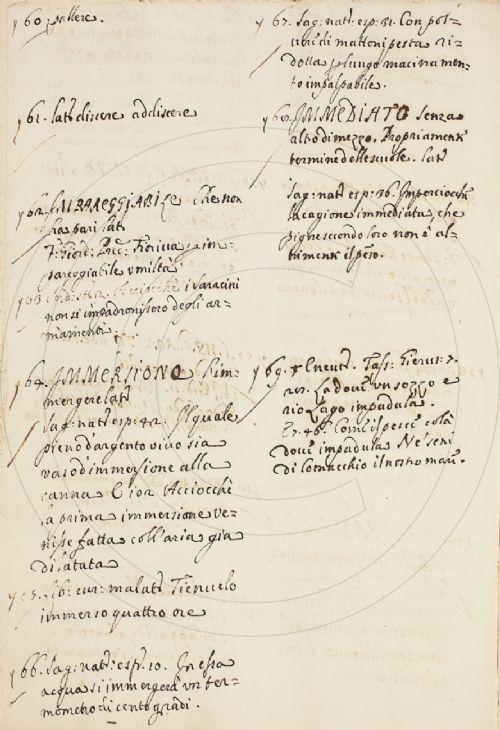 60. pallere.
61. lat. discere addiscere
62. IMPAREGGIABILE Che non
ha pari lat.
F. Giord. Pred. Fioriva p. im-
pareggiabile umiltà
63. acciocchè i Saracini
non si impadronissero degli ar-
mamenti.
64. IMMERSIONE L'im-
mergere lat.
Sag: nat: esp: 42. Il quale
pieno d'argento vivo sia
vaso d'immersione alla
canna E ior Acciocchè
la prima immersione ve-
nisse fatta coll'aria già
dilatata
65. lib: cur: malat. Tienvelo
immerso quattro ore
66. Sag: nat: esp: 10. In essa
acqua si immergerà un ter-
mometro di cento gradi.
67. Sag: nat: esp: 81. Con pol-
vere di mattoni pesta ri-
dotta p. lungo macinamen-
to impalpabile.
68. IMMEDIATO Senza
altro di mezzo. Propriamente
termine delle scuole. lat.
Sag: nat: esp: 36. Imperciocchè
la cagione immediata, che
pigne secondo loro non è al-
trimenti il peso.
69. E neut. Tass: Gierus: 7.
La dove un sozzo e
rio Lago impadula.
E 46. Come il pesce colà
dove impadula Ne' seni
di Comacchio il nostro mare.